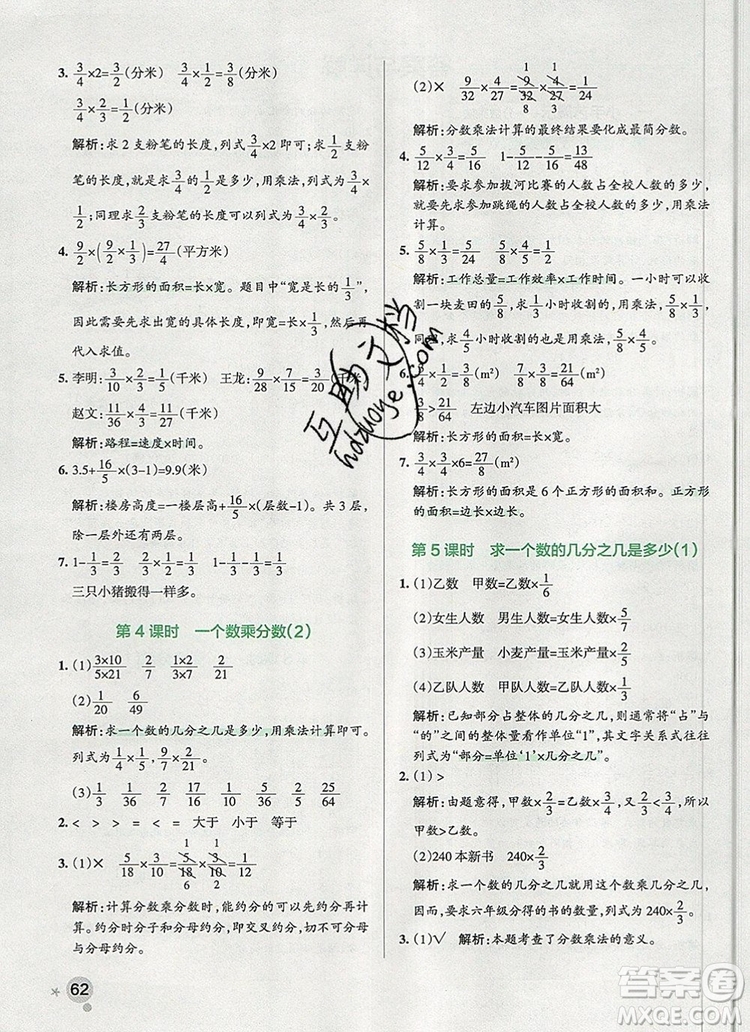 3. 3/4×2=3/2(分米)  3/4×1/2=3/8(分米)
3/4×2/3=1/2(分米)
解析:求2支粉笔的长度,列式3/4×2即可;有1/2支粉
笔,就是求3/4的1/2是多少,用乘法,列式为3/4×
1/2;同理求2/3支粉笔的长度可以列式为3/4×2/3。
4. 9/2×(9/2×1/3)=27/4(平方米)
解析:长方形的面积=长×宽。题目中“宽是长的1/3”,
因此需要先求出宽的具体长度,即9/2×1/3=3/2(米),然后
代入求值。
5. 李明:3/10×2/3=1/5(千米)  王龙:9/28×7/15=3/20(千米)
赵文:11/36×4/11=1/9(千米)
解析:路程=速度×时间。
6. 3.5+16/5×(3-1)=9.9(米)
解析:楼房高度=一层楼高+16/5×(层数-1)。共3层,
除一层外还有两层。
7. 1-1/3-1/3=1/3  2/3×1/2=1/3  1/3=1/3=1/3
三只小猪搬得一样多。
第4课时 一个数乘分数(2)
1. (1)3×10/5×21  2/7  1×2/3×7  2/21
(2)1/20  6/49
解析:求一个数的几分之几是多少,用乘法计算即可。
列式为1/4×1/5=1/20,2/7×3/7=6/49。
(3)1/16  2/21  2/7  16/27  1/16  1/10  9/64  1/10
2. < > > = < = 大于 小于 等于
3. (1)× 5/18×3/10=5/18×3/10=1/12
1 1
6 2
解析:计算分数乘分数时,能约分的可以先约分再计
算。约分时分子和分母约分,不可分子与分子约分或
分母与分母约分。
62
(2)× 9/32×4/27=9/32×4/27=1/24
1 1
8 3
解析:分数乘法计算的最终结果要化成最简分数。
4. 5/12×3/4=5/16  1-5/16-5/12=13/48
解析:要求参加拔河比赛的人数占全校人数的多少,
就要先求参加跳绳的人数占全校人数的多少,用乘法
计算。
5. 5/8×1/3=5/24  5/8×4/5=1/2
解析:工作总量=工作效率×工作时间。一小时可以收
割一块麦田的5/8,求1/3小时收割的用乘法,列式为5/8×1/3。
同理,求4/5小时收割的也是用乘法,列式为5/8×4/5。
6. 1/2×3/4=3/8(m²)  7/16×3/4=21/64(m²)
3/8>21/64  左边小汽车图片面积大
解析:长方形的面积=长×宽。
7. 3/4×3/4×6=27/8(m²)
解析:长方形的面积是6个正方形的面积和。正方形
的面积=边长×边长。
第5课时 求一个数的几分之几是多少(1)
1. (1)乙数 甲数=乙数×1/6
(2)女生人数 男生人数=女生人数×5/7
(3)玉米产量 小麦产量=玉米产量×5/7
(4)乙队人数 甲队人数=乙队人数×5/8
解析:已知部分占整体的几分之几,则通常将“占”与
“的”之间的整体量看作单位“1”,其文字关系式往往
列式为“部分=单位‘1’×几分之几”。
2. (1)>
解析:由题意得,甲数×2/3=乙数×3/4,因为3/4>2/3,所以
甲数>乙数。
(2)240本新书 240×2/3
解析:求一个数的几分之几是多少,用分数乘法计算,
因而,要求六年级分得的书的数量,列式为240×2/3。
3. (1)√ 解析:本题考查了分数乘法的意义。
互助文档
hdzuoye.com
答案圈
MXQE.COM